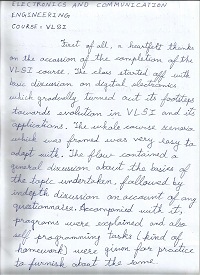 ELECTRONICS AND COMMUNICATION
ENGINEERING
COURSE: VLSI
First of all, a heartfelt thanks
on the occasion of the completion of the
VLSI course. The class started off with
basic discussion on digital electronics
which gradually turned act its footsteps
towards evolution in VLSI and its
applications. The whole course scenario
which was framed was very easy to
adapt with. The flow contained a
general discussion about the basics of
the topic undertaken, followed by
indepth discussion on account of any
questionnaires. Accompanied with it,
programs were explained and also
self programming tasks (kind of
homework) were given for practice
to furnish about the same.